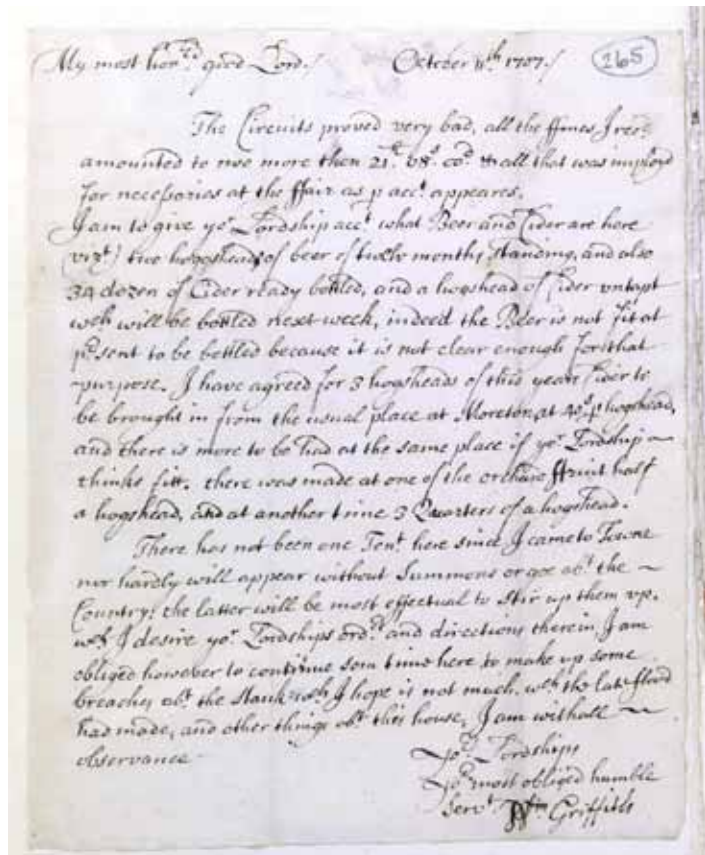 My most hon.rd good Lord./ October 11th 1707./ 265
The Circuits proved very bad, all the ffines I rec.d
amounted to noe more then 21£. 08s. 00d. & all that was imployd
for necessaries at the ffair as p acct. appeares.
I am to give yor. Lordship acct. what Beer and Cider are here
vizt.) two hogsheads of beer of twelv months standing, and also
34 dozen of Cider ready botled, and a hogshead of Cider vntapt
wch will be botled next week, indeed the Beer is not fit at
p.sent to be botled because it is not clear enough for that
purpose. I have agreed for 3 hogsheads of this years Cider to
be brought in from the usual place at Moreton, at 40s. p hogshead,
and there is more to be had at the same place if yor. Lordship ~
thinks fitt. there was made at one of the orchard ffruit half
a hogshead, and at another time 3 Quarters of a hogshead.
There has not been one Tent. here since I came to Towne
nor hardly will appear without Summons or goe abt. the ~
Country: the latter will be most effectual to stir up them vp.
wch I desire yor. Lordships ordrs. and directions therein, I am
obliged however to continue som time here to make up some
breaches abt. the Stank wch I hope is not much, wch the late flood
had made, and other things abt. this house, I am with all ~
observance
yor. Lordships
yor. most obliged humble
Servt. Wm Griffith